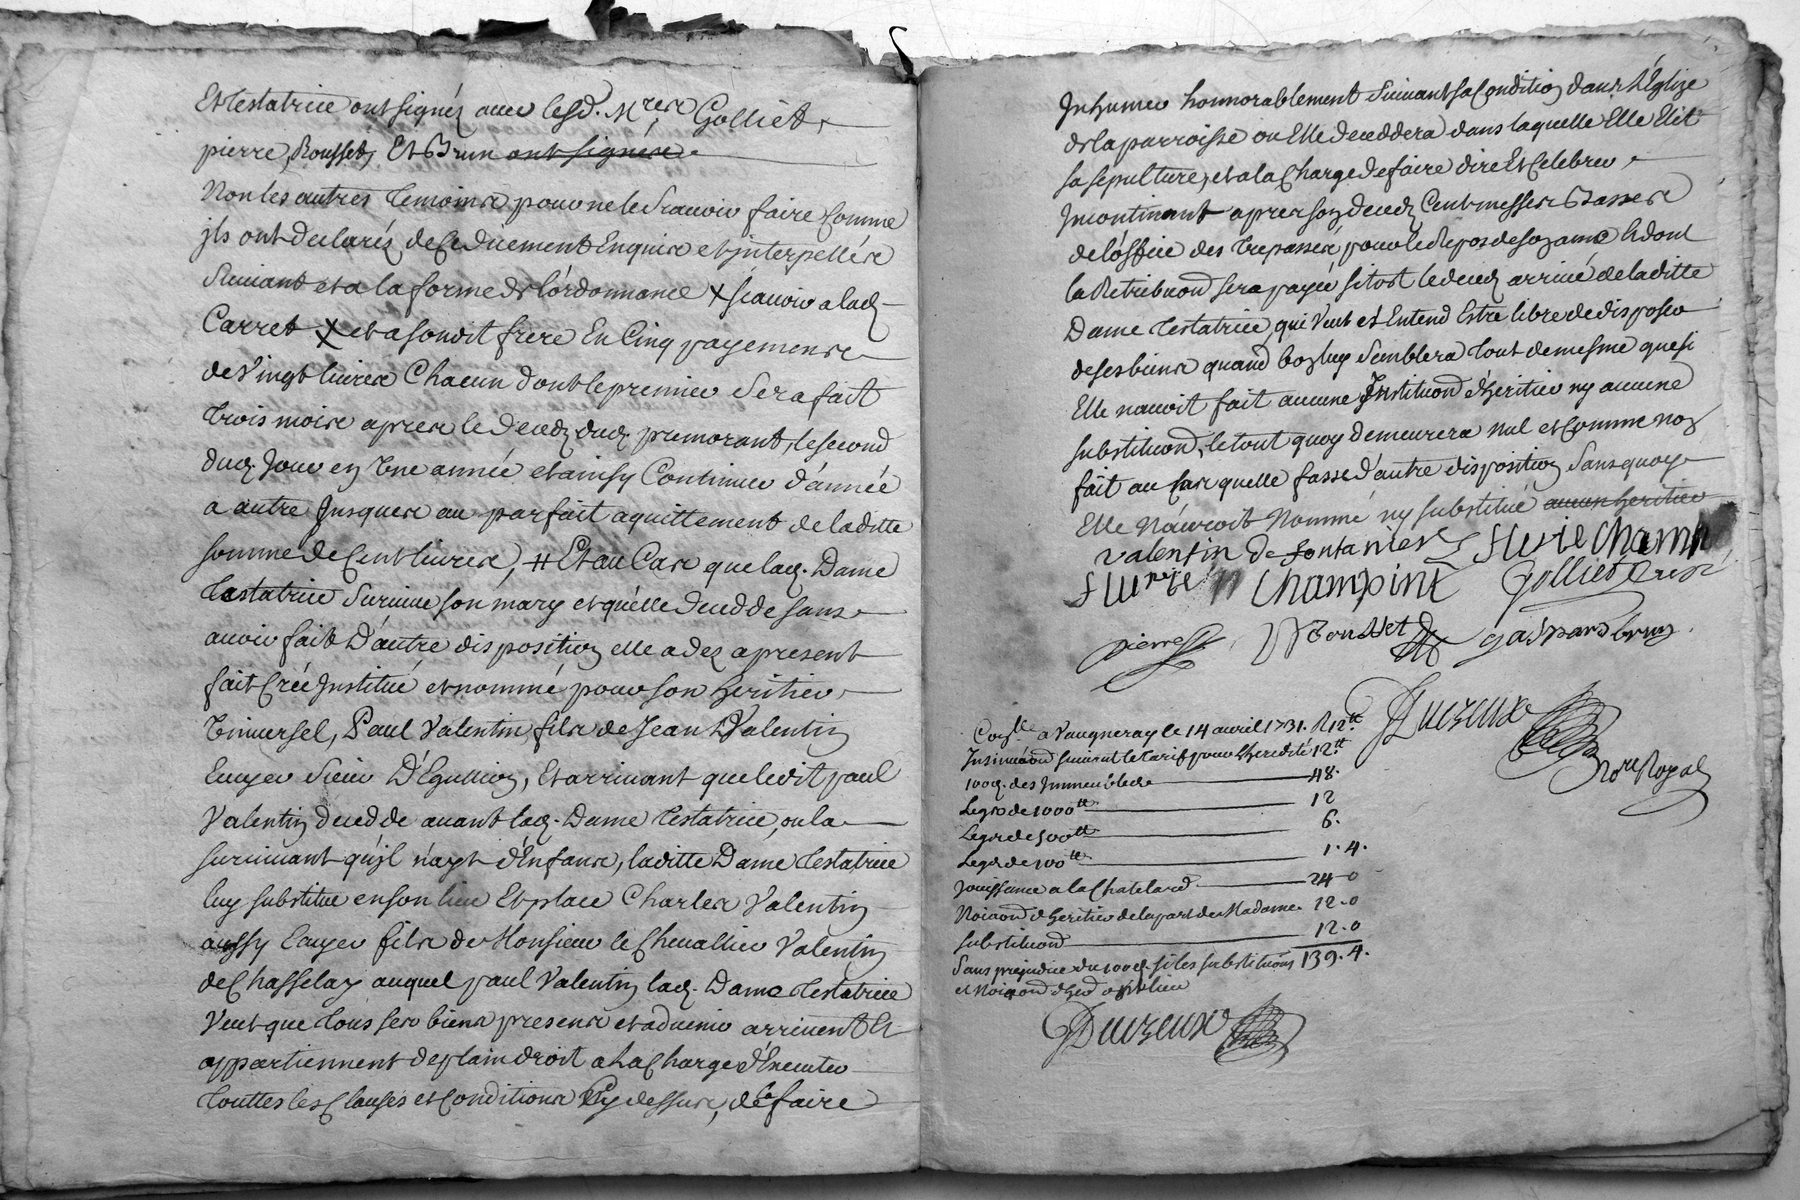 Et testatrice ont signéz avec lesd. Mres Golliet,
pierre, Rousset, Et Brun ont signéz.
Non les autres temoins pour ne le scavoir faire comme
jls ont declaréz de ce duement Enquis et jnterpellés
suivant et a la forme de l'ordonnance x scavoir a lad.
Carret x et a sondit frere En Cinq payements
de Vingt livres Chacun dont le premier Sera fait
trois mois apres le deced dud. premorant, le second
dud. Jour en Une année et ainsy Continuer d'année
a autre Jusques au parfait aquittement de laditte
somme de Cent livres, # Et au Cas que lad. Dame
testatrice survive son mary et qu'elle decedde sans
avoir fait D'autre disposition elle a dez a present
fait Créé Jnstitué et nommé pour son heritier
Universel, Paul Valentin fils de Jean Valentin
Ecuyer Sieur D'Eguillion, Et arrivant que ledit paul
Valentin decedde avant lad. Dame testatrice, ou la
survivant qu'jl n'ayt d'Enfans, laditte Dame testatrice
luy substitue en son lieu Et place Charles Valentin
aussy Ecuyer fils de Monsieur le Chevallier Valentin
de Chasselay auquel paul Valentin lad. Dame testatrice
Veut que tous ses biens presens et advenir arrivent Et
appartiennent de plain droit a la Charge d'Executer
touttes les Clauses et Conditions Cy dessus, de la faire
Jnhumer honnorablement suivant sa Condition dans l'Eglize
de la parroisse ou Elle deceddera dans laquelle Elle Elit
sa sepulture, et a la Charge de faire dire Et Celebrer
Jncontinant apres son deced Cent messes Basses
de l'office des trepassés pour le Repos de son ame Et dont
la Retribuõn sera payée sitost le deced arrivé de laditte
Dame testatrice, qui Veut et Entend Estre libre de disposer
de ses biens quand bon luy Semblera tout de mesme que si
Elle n'avoit fait aucune Jnstituõn d'heritier ny aucune
substituõn, le tout quoy demeurera nul et comme non
fait au Cas quelle fasse d'autre disposition Sans quoy
Elle N'auroit Nommé ny substitué aucun heritier
Valentin de fontanier flurie Champ
flurie Champint Golliet Curé
pierre Rousset gaspard brun
Con.lle a Vaugneray le 14 avril 1731. R 12.tt Ducreux
Jnsinuãon suivant le tarif pour l'heredité 12.tt Nore Royal
100d. des Jmmeubles 48.
Legs de 1000tt 12
Legs de 500tt 6.
Legs de 100tt 1. 4.
Jouissance a la Chatelard 24-0
Noiãon d'heritier de la part de Madame 12-0
substituõn 12.0
Sans prejudice du 100d. si les substituõns 139. 4.
et Noiãon d'her. ont lieu
Ducreux